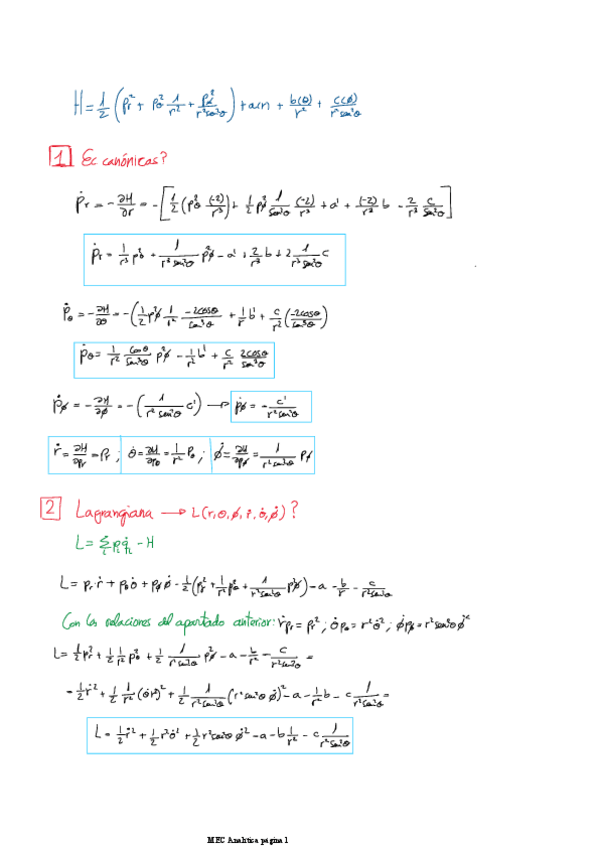 H = 1/2 (pr² + pθ² 1/r² + pφ²/(r² sen²θ)) + a(r) + b(θ)/r² + c(φ)/(r² sen²θ)
1 Ec canónicas?
ṗr = -∂H/∂r = -[1/2 (pθ² (-2)/r³) + 1/2 pφ² 1/sen²θ (-2)/r³ + a' + (-2)/r³ b - 2/r³ c/sen²θ]
ṗr = 1/r³ pθ² + 1/(r³ sen²θ) pφ² - a' + 2/r³ b + 2 1/(r³ sen²θ) c
ṗθ = -∂H/∂θ = -(1/2 pφ² 1/r² (-2cosθ)/sen³θ + 1/r² b' + c/r² (-2cosθ/sen³θ))
ṗθ = 1/r² cosθ/sen³θ pφ² - 1/r² b' + c/r² 2cosθ/sen³θ
ṗφ = -∂H/∂φ = -(1/(r² sen²θ) c') → ṗφ = -c'/(r² sen²θ)
ṙ = ∂H/∂pr = pr ; θ̇ = ∂H/∂pθ = 1/r² pθ ; φ̇ = ∂H/∂pφ = 1/(r² sen²θ) pφ
2 Lagrangiana → L(r, θ, φ, ṙ, θ̇, φ̇)?
L = Σi pi q̇i - H
L = pr ṙ + pθ θ̇ + pφ φ̇ - 1/2 (pr² + 1/r² pθ² + 1/(r² sen²θ) pφ²) - a - b/r - c/(r² sen²θ)
Con las relaciones del apartado anterior: ṙ pr = pr² ; θ̇ pθ = r² θ̇² ; φ̇ pφ = r² sen²θ φ̇²
L = 1/2 pr² + 1/2 1/r² pθ² + 1/2 1/(r² sen²θ) pφ² - a - b/r² - c/(r² sen²θ) =
= 1/2 ṙ² + 1/2 1/r² (θ̇ r²)² + 1/2 1/(r² sen²θ) (r² sen²θ φ̇)² - a - 1/r² b - c 1/(r² sen²θ) =
L = 1/2 ṙ² + 1/2 r² θ̇² + 1/2 r² sen²θ φ̇² - a - b 1/r² - c 1/(r² sen²θ)
MEC Analitica página 1